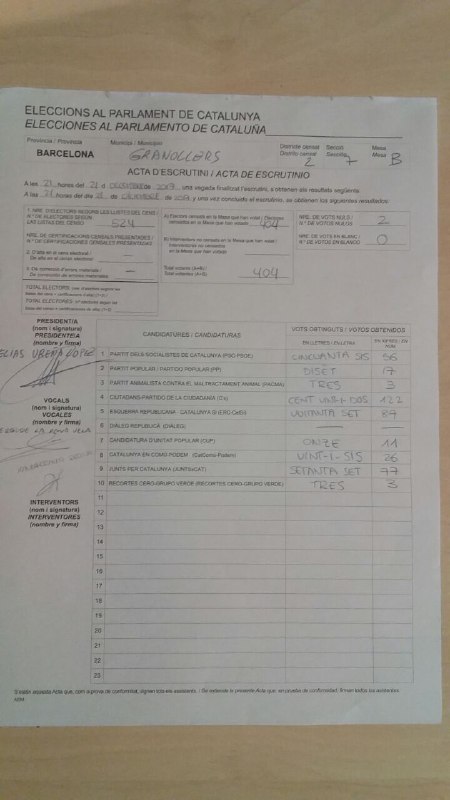 ELECCIONS AL PARLAMENT DE CATALUNYA
ELECCIONES AL PARLAMENTO DE CATALUÑA
Província / Provincia
Municipi / Municipio
Districte censal
Distrito censal
Secció
Sección
Mesa
Mesa
BARCELONA GRANOLLERS 2 7 B
ACTA D'ESCRUTINI / ACTA DE ESCRUTINIO
A les 21 hores del 21 d DESEMBRE de 2017, una vegada finalitzat l'escrutini, s'obtenen els resultats següents:
A las 21 horas del 21 de DICIEMBRE de 2017 y una vez concluido el escrutinio, se obtienen los siguientes resultados:
1. NRE. D'ELECTORS SEGONS LES LLISTES DEL CENS
N.º DE ELECTORES SEGÚN
LAS LISTAS DEL CENSO 524
NRE. DE CERTIFICACIONS CENSALS PRESENTADES
N.º DE CERTIFICACIONES CENSALES PRESENTADAS
2. D'alta en el cens electoral /
De alta en el censo electoral —
3. De correcció d'errors materials /
De corrección de errores materiales —
A) Electors censats en la Mesa que han votat / Electores
censados en la Mesa que han votado 404
B) Interventors no censats en la Mesa que han votat /
Interventores no censados
en la Mesa que han votado
Total votants (A+B) /
Total votantes (A+B) 404
NRE. DE VOTS NULS /
N.º DE VOTOS NULOS 2
NRE. DE VOTS EN BLANC /
N.º DE VOTOS EN BLANCO 0
PRESIDENT/A
(nom i signatura)
PRESIDENTE/A
(nombre y firma)
ELIAS UREÑA LÓPEZ
VOCALS
(nom i signatura)
VOCALES
(nombre y firma)
INTERVENTORS
(nom i signatura)
INTERVENTORES
(nombre y firma)
CANDIDATURES / CANDIDATURAS
VOTS OBTINGUTS / VOTOS OBTENIDOS
EN LLETRES / EN LETRA
EN XIFRES / EN NÚM.
1 PARTIT DELS SOCIALISTES DE CATALUNYA (PSC-PSOE) CINCUANTA SIS 56
2 PARTIT POPULAR / PARTIDO POPULAR (PP) DISET 17
3 PARTIT ANIMALISTA CONTRA EL MALTRACTAMENT ANIMAL (PACMA) TRES 3
4 CIUTADANS-PARTIDO DE LA CIUDADANÍA (Cs) CENT VINT-I-DOS 122
5 ESQUERRA REPUBLICANA - CATALUNYA SÍ (ERC-CatSí) VUITANTA SET 87
6 DIÀLEG REPUBLICÀ (DIÀLEG) — —
7 CANDIDATURA D'UNITAT POPULAR (CUP) ONZE 11
8 CATALUNYA EN COMÚ PODEM (CatComú-Podem) VINT-I-SIS 26
9 JUNTS PER CATALUNYA (JUNTSxCAT) SETANTA SET 77
10 RECORTES CERO-GRUPO VERDE (RECORTES CERO-GRUPO VERDE) TRES 3
11
12
13
14
15
16
17
18
19
20
21
22
23